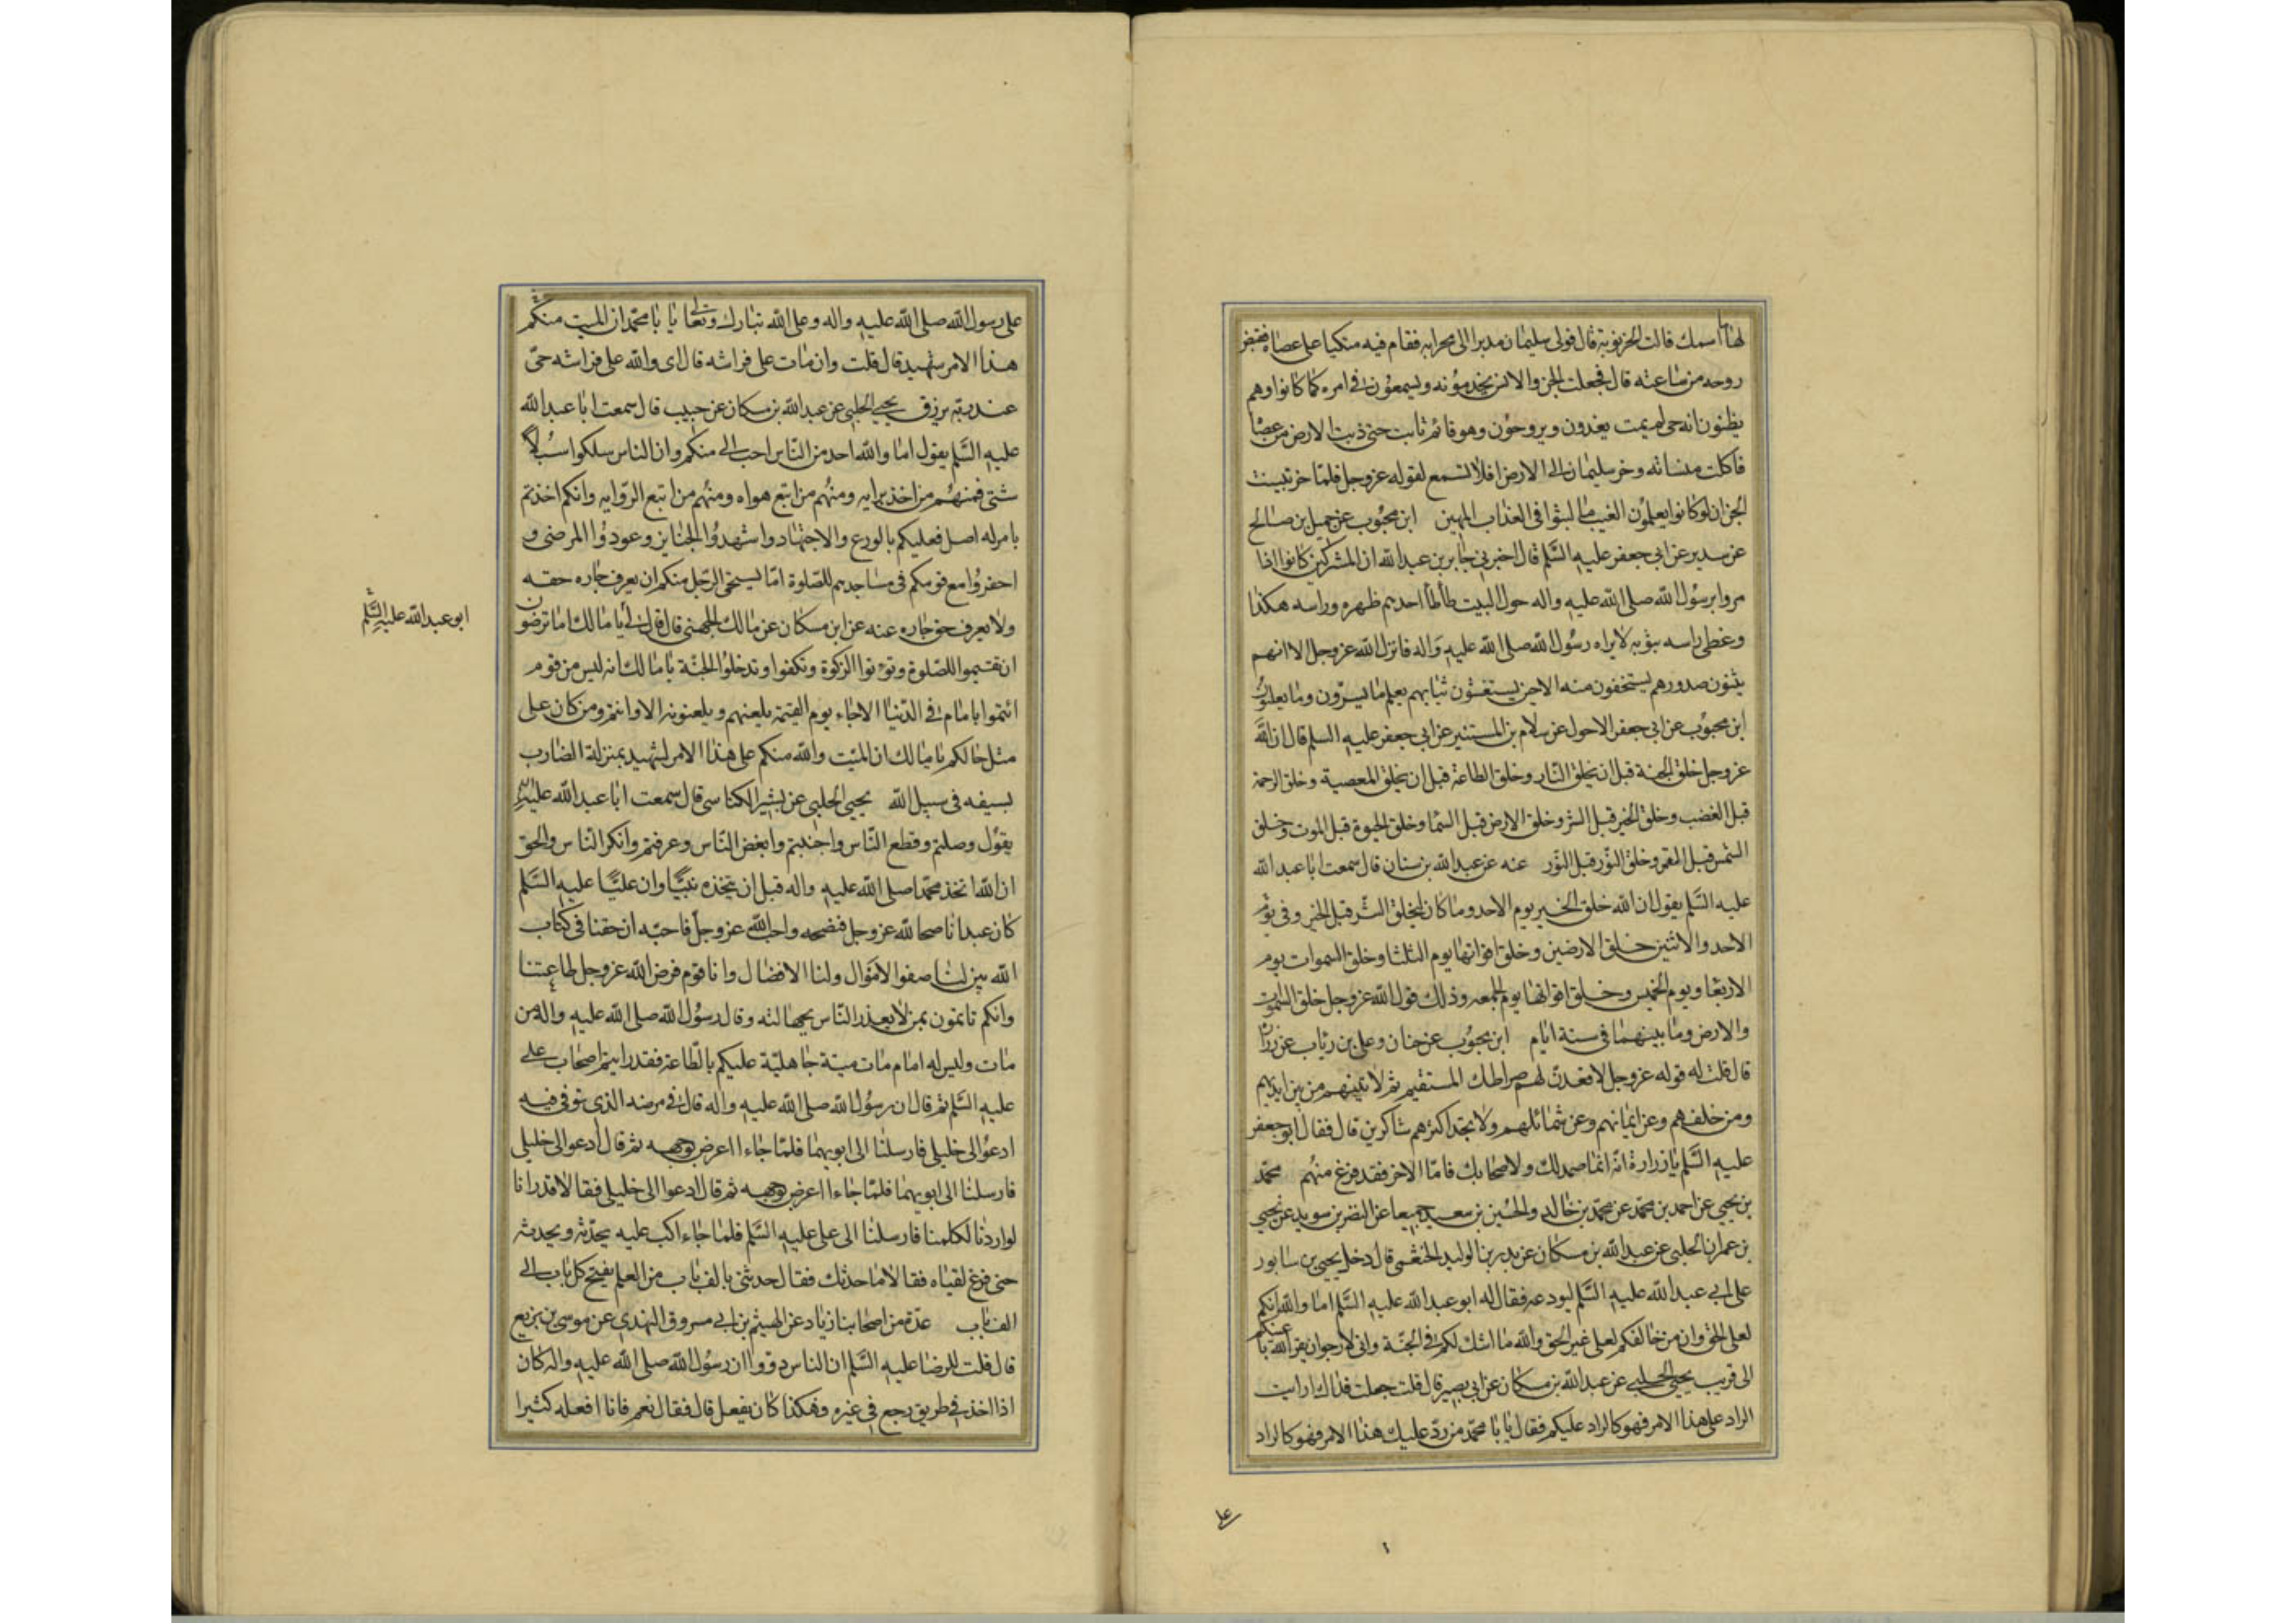 لها ما اسمك قالت الخرنوبة قال فولى سليمان مدبرا الى محرابه فقام فيه متكيا على عصاه فقبض
روحه من ساعته قال فجعلت الجن والانس يخدمونه ويسمعون فى امره كما كانوا وهم
يظنون انه حى لم يمت يغدون ويروحون وهو قائم ثابت حتى دبت الارض من عصاه
فاكلت منساته وخر سليمان الى الارض افلا تسمع لقوله عز وجل فلما خر تبينت
الجن ان لو كانوا يعلمون الغيب ما لبثوا فى العذاب المهين ابن محبوب عن جميل بن صالح
عن سدير عن ابى جعفر عليه السلم قال اخبرنى جابر بن عبد الله ان المشركين كانوا اذا
مروا برسول الله صلى الله عليه واله حول البيت طاطأ احدهم ظهره وراسه هكذا
وغطى راسه بثوبه لا يراه رسول الله صلى الله عليه واله فانزل الله عز وجل الا انهم
يثنون صدورهم ليستخفون منه الا حين يستغشون ثيابهم يعلم ما يسرون وما يعلنون
ابن محبوب عن ابى جعفر الاحول عن سلام بن المستنير عن ابى جعفر عليه السلم قال ان الله
عز وجل خلق الجنة قبل ان يخلق النار وخلق الطاعة قبل ان يخلق المعصية وخلق الرحمة
قبل الغضب وخلق الخير قبل الشر وخلق الارض قبل السما وخلق الحيوة قبل الموت وخلق
الشمس قبل القمر وخلق النور قبل النور عنه عن عبد الله بن سنان قال سمعت ابا عبد الله
عليه السلم يقول ان الله خلق الخير يوم الاحد وما كان ليخلق الشر قبل الخير وفى يوم
الاحد والاثنين خلق الارضين وخلق اقواتها يوم الثلثا وخلق السموات يوم
الاربعا ويوم الخميس وخلق اقواتها يوم الجمعه وذلك قول الله عز وجل خلق السموات
والارض وما بينهما فى ستة ايام ابن محبوب عن حنان وعلى بن رئاب عن زرارة
قال قلت له قوله عز وجل لاقعدن لهم صراطك المستقيم ثم لاتينهم من بين ايديهم
ومن خلفهم وعن ايمانهم وعن شمائلهم ولا تجد اكثرهم شاكرين قال فقال ابو جعفر
عليه السلم يا زرارة انه انما صمد لك ولاصحابك فاما الاخر فقد فرغ منهم محمد
بن يحيى عن احمد بن محمد عن محمد بن خالد والحسين بن سعيد جميعا عن النضر بن سويد عن يحيى
بن عمران الحلبى عن عبد الله بن مسكان عن بدر بن الوليد الخثعمى قال دخل يحيى بن سابور
على ابى عبد الله عليه السلم ليودعه فقال له ابو عبد الله عليه السلم اما والله انكم
لعلى الحق وان من خالفكم لعلى غير الحق والله ما اشك لكم فى الجنة وانى لارجو ان يقر الله باعينكم
الى قريب يحيى الحلبى عن عبد الله بن مسكان عن ابى بصير قال قلت جعلت فداك ارايت
الراد على هذا الامر فهو كالراد عليكم فقال يا با محمد من رد عليك هذا الامر فهو كالراد
على
على رسول الله صلى الله عليه واله وعلى الله تبارك وتعالى يا با محمد ان الميت منكم
هذا الامر شهيد قال قلت وان مات على فراشه قال اى والله على فراشه حى
عند ربه يرزق يحيى الحلبى عن عبد الله بن مسكان عن حبيب قال سمعت ابا عبد الله
عليه السلم يقول اما والله احد من الناس احب الى منكم وان الناس سلكوا سبلا
شتى فمنهم من اخذ برايه ومنهم من اتبع هواه ومنهم من اتبع الروايه وانكم اخذتم
بامر له اصل فعليكم بالورع والاجتهاد واشهدوا الجنايز وعودوا المرضى و
احضروا مع قومكم فى مساجدهم للصلوة اما يستحى الرجل منكم ان يعرف جاره حقه
ولا يعرف حق جاره عنه عن ابن مسكان عن مالك الجهنى قال قال لى يا مالك اما ترضون
ابو عبد الله عليه السلم
ان تقيموا الصلوة وتؤتوا الزكوة وتكفوا وتدخلوا الجنة يا مالك انه ليس من قوم
ائتموا بامام فى الدنيا الا جاء يوم القيمة يلعنهم ويلعنونه الا وانتم ومن كان على
مثل حالكم يا مالك ان الميت والله منكم على هذا الامر لشهيد بمنزلة الضارب
بسيفه فى سبيل الله يحيى الحلبى عن بشير الكناسى قال سمعت ابا عبد الله عليه السلم
يقول وصلتم وقطع الناس واحببتم وابغض الناس وعرفتم وانكر الناس والحق
ان الله اتخذ محمدا صلى الله عليه واله قبل ان يتخذه نبيا وان عليا عليه السلم
كان عبدا ناصحا لله عز وجل فنصحه واحب الله عز وجل فاحبه ان حقنا فى كتاب
الله بين لنا صفو الاموال ولنا الانفال وانا قوم فرض الله عز وجل طاعتنا
وانكم تاتمون بمن لا يعذر الناس بجهالته وقال رسول الله صلى الله عليه واله من
مات وليس له امام مات ميتة جاهلية عليكم بالطاعة فقد رايتم اصحاب على
عليه السلم ثم قال ان رسول الله صلى الله عليه واله قال فى مرضه الذى توفى فيه
ادعوا لى خليلى فارسلنا الى ابويهما فلما جاءا اعرض بوجهه ثم قال ادعوا لى خليلى
فارسلنا الى ابويهما فلما جاءا اعرض بوجهه ثم قال ادعوا لى خليلى فقالا قد رانا
لو ارادنا لكلمنا فارسلنا الى على عليه السلم فلما جاء اكب عليه يحدثه ويحدثه
حتى فرغ لقياه فقالا ما حدثك فقال حدثنى بالف باب من العلم يفتح كل باب الى
الف باب عدة من اصحابنا زياد عن الهيثم بن ابى مسروق النهدى عن موسى بن بزيع
قال قلت للرضا عليه السلم ان الناس رووا ان رسول الله صلى الله عليه واله كان
اذا اخذ فى طريق رجع فى غيره وهكذا كان يفعل قال فقال نعم فانا افعله كثيرا